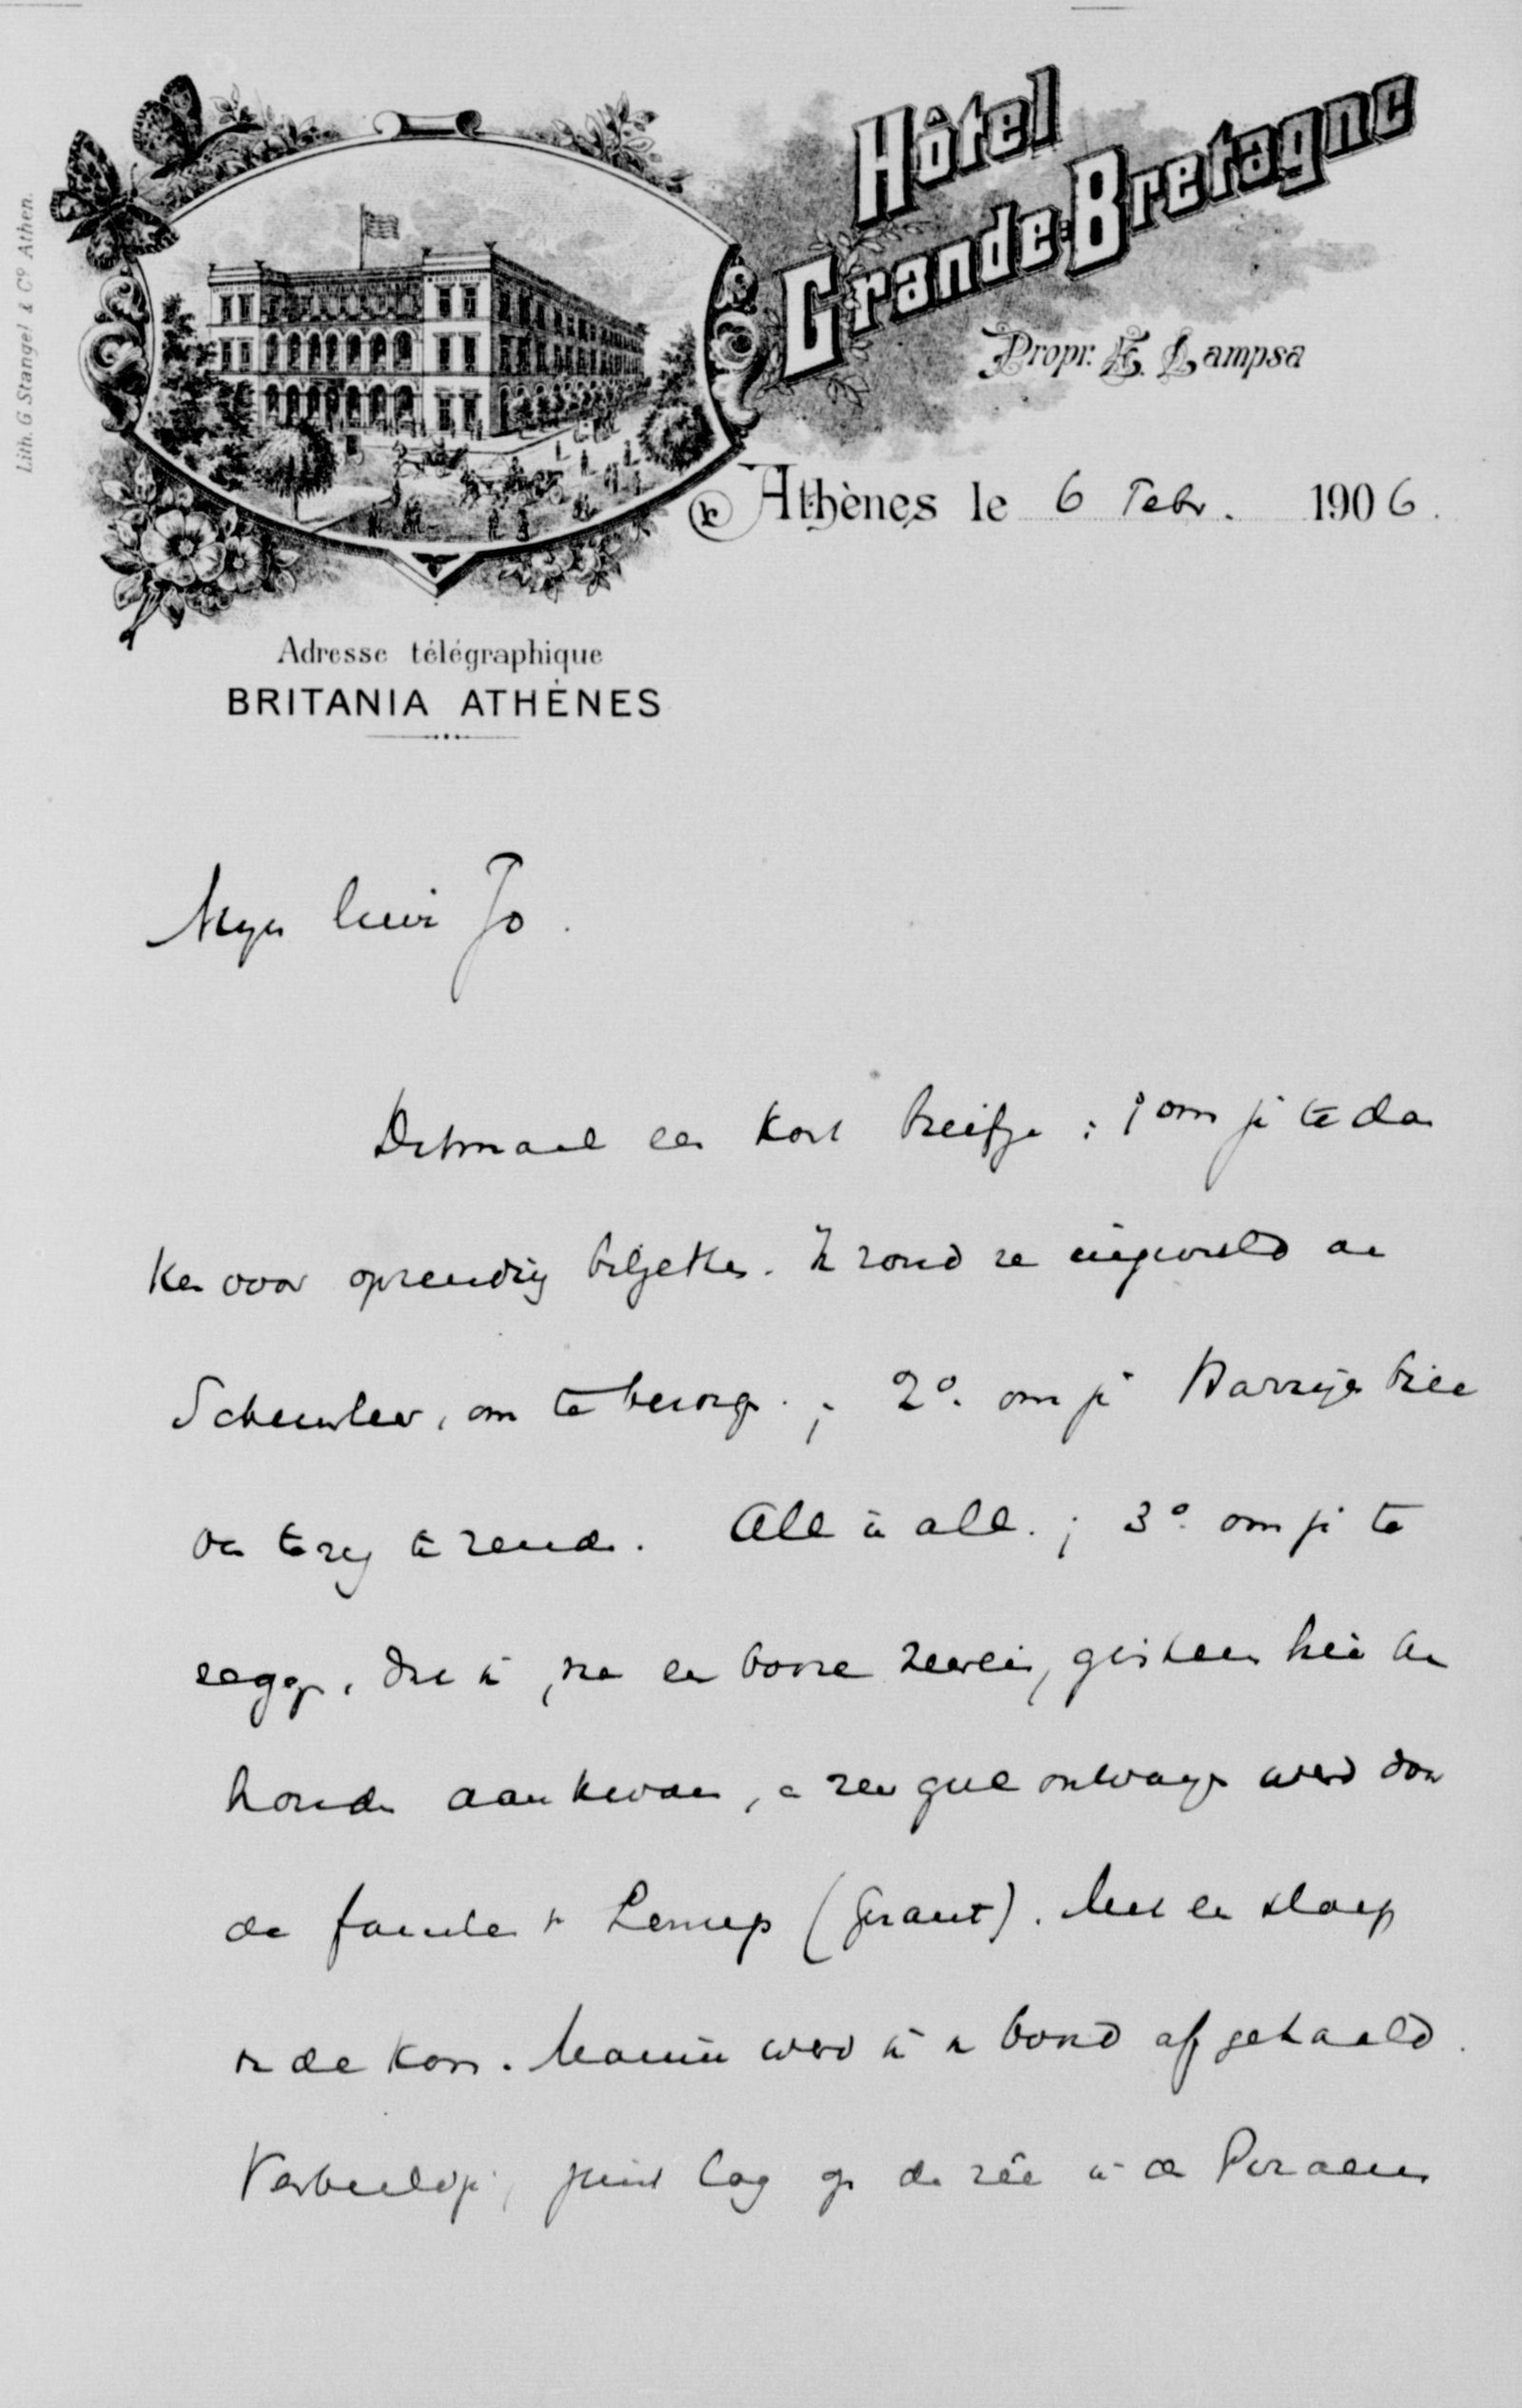 Lith. G Stangel & Co Athen.
Hôtel
Grande-Bretagne
Propr. E. Lampsa
Athènes le 6 Febr. 1906.
Adresse télégraphique
BRITANIA ATHÈNES
Mijn lieve Jo.
Ditmaal een kort briefje: 1° om je te dan
ken voor opzending biljetten. Ik zond ze ingevuld aan
Scheurleer, om te bezorgen.; 2° om je
terug te zenden. All in all.; 3° om je te
zeggen, dat ik, na een booze zeereis, gisteren hier be
houden aankwam, en zeer gul ontvangen werd door
de familie v Lennep (Gerant). Met een sloep
v de Kon. Marine werd ik v boord afgehaald.
Verbeeld je, juist lag op de rêe in de Piraeus